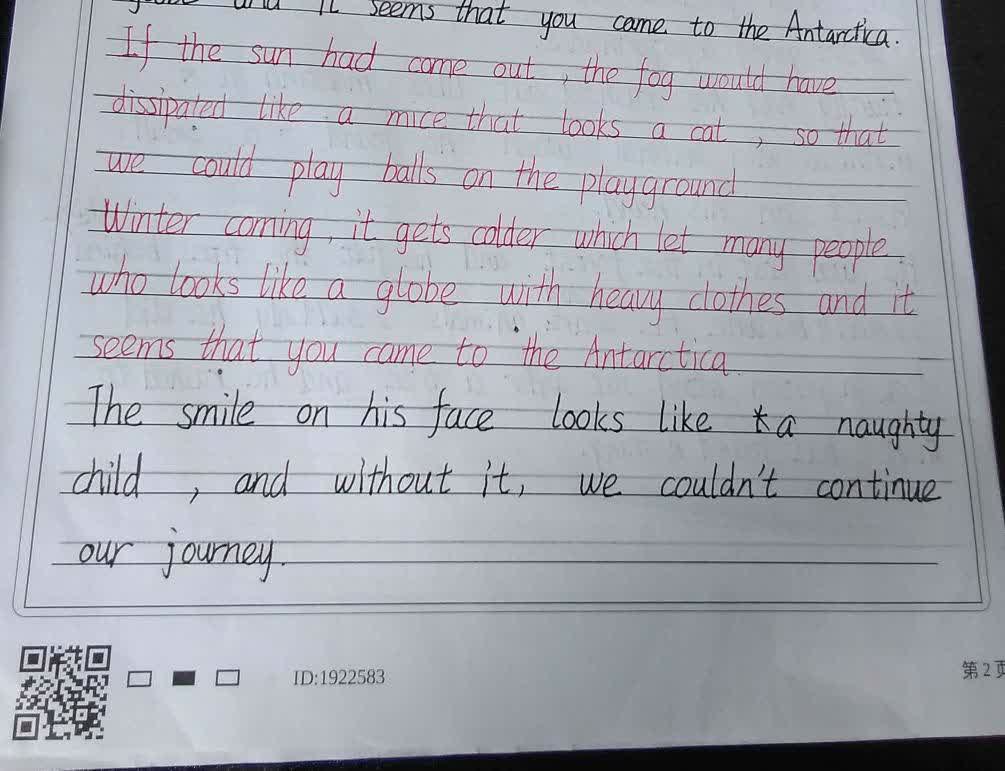 and it seems that you came to the Antarctica.
If the sun had come out, the fog would have
dissipated like a mice that looks a cat, so that
we could play balls on the playground
Winter coming, it gets colder which let many people
who looks like a globe with heavy clothes and it
seems that you came to the Antarctica.
The smile on his face looks like a naughty
child, and without it, we couldn't continue
our journey.
ID:1922583
第2页